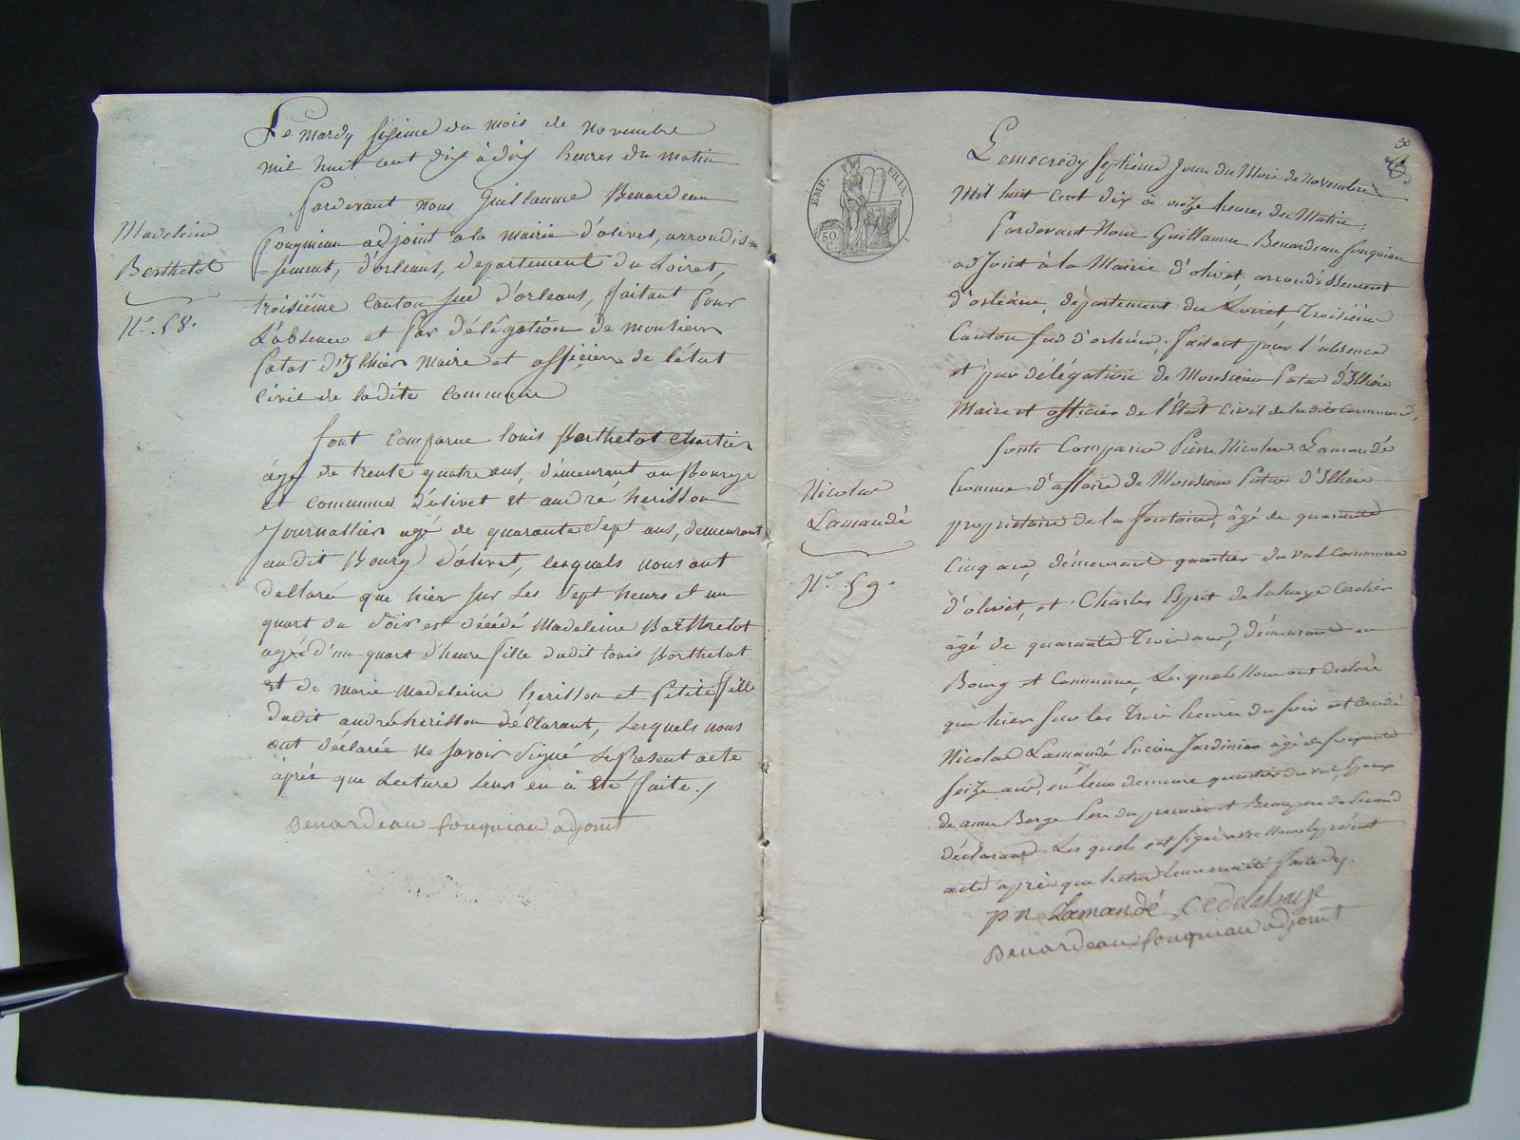 Le mardy sixieme du mois de novembre
mil huit cent dix à dix heures du matin
Pardevant nous Guillaume Benardeau
fouqueau adjoint a la mairie d'olivet, arrondis=
=sement, d'orleans, departement du Loiret,
troisième canton sud d'orleans, faitant pour
L'absence et par délégation de monsieur
patas d'Illiers maire et officier de l'état
civil de ladite commune
Madeleine
Berthelot
N.º 58.
sont comparue louis Berthelot chartier
agé de trente quatre ans, demeurant au Bourg
et commune d'olivet et andré herisson
Journallier agé de quarante sept ans, demeurant
audit Bourg d'olivet, lesquels nous ont
dellaré que hier sur les sept heures et un
quart du soir est décédé Madeleine Berthelot
agée d'un quart d'heure fille dudit louis Berthelot
et de marie Madeleine herisson et petite fille
dudit andré herisson déllarant, lesquels nous
ont déclarée ne savoir signé le present acte
après que lecture leur en à été faite./
Benardeau fouqueau adjoint
EMP. FRAN.
50
Le mecredy septième Jour du Mois de novembre
Mil huit Cent dix à onze heures du Matin.
Pardevant Nous Guillaume Benardeau fouqueau
adjoint à la Mairie d'olivet, arrondissement
d'orleans, département du Loiret Troisième
Canton sud d'orleans, faisant pour l'absence
et par délégation de Monsieur Patas d'Illiers
Maire et officier de l'État Civil de ladite Commune,
Nicolas
Lamandé
N.º 59.
sont Comparus Pierre Nicolas Lamandé
homme d'affaire de Monsieur Patas d'Illiers
propriétaire de la fontaine, âgé de quarante
Cinq ans, démeurant quartier du val Commune
d'olivet, et Charles Esprit de lahaye
âgé de quarante Trois ans, démeurant au
Bourg et Commune, Lesquels Nous ont déclaré
que hier sur les Trois heures du soir est décédé
Nicolas Lamandé Encien Jardinier âgé de soixante
seize ans, en leur demeure quartier du val, Epoux
de anne Berge Pere du premier et Beaupere du second
déclarant. Lesquels ont signé avec Nous le présent
acte après que lecture leur en a été faite
pn Lamandé cedelahaye
Benardeau fouqueau adjoint